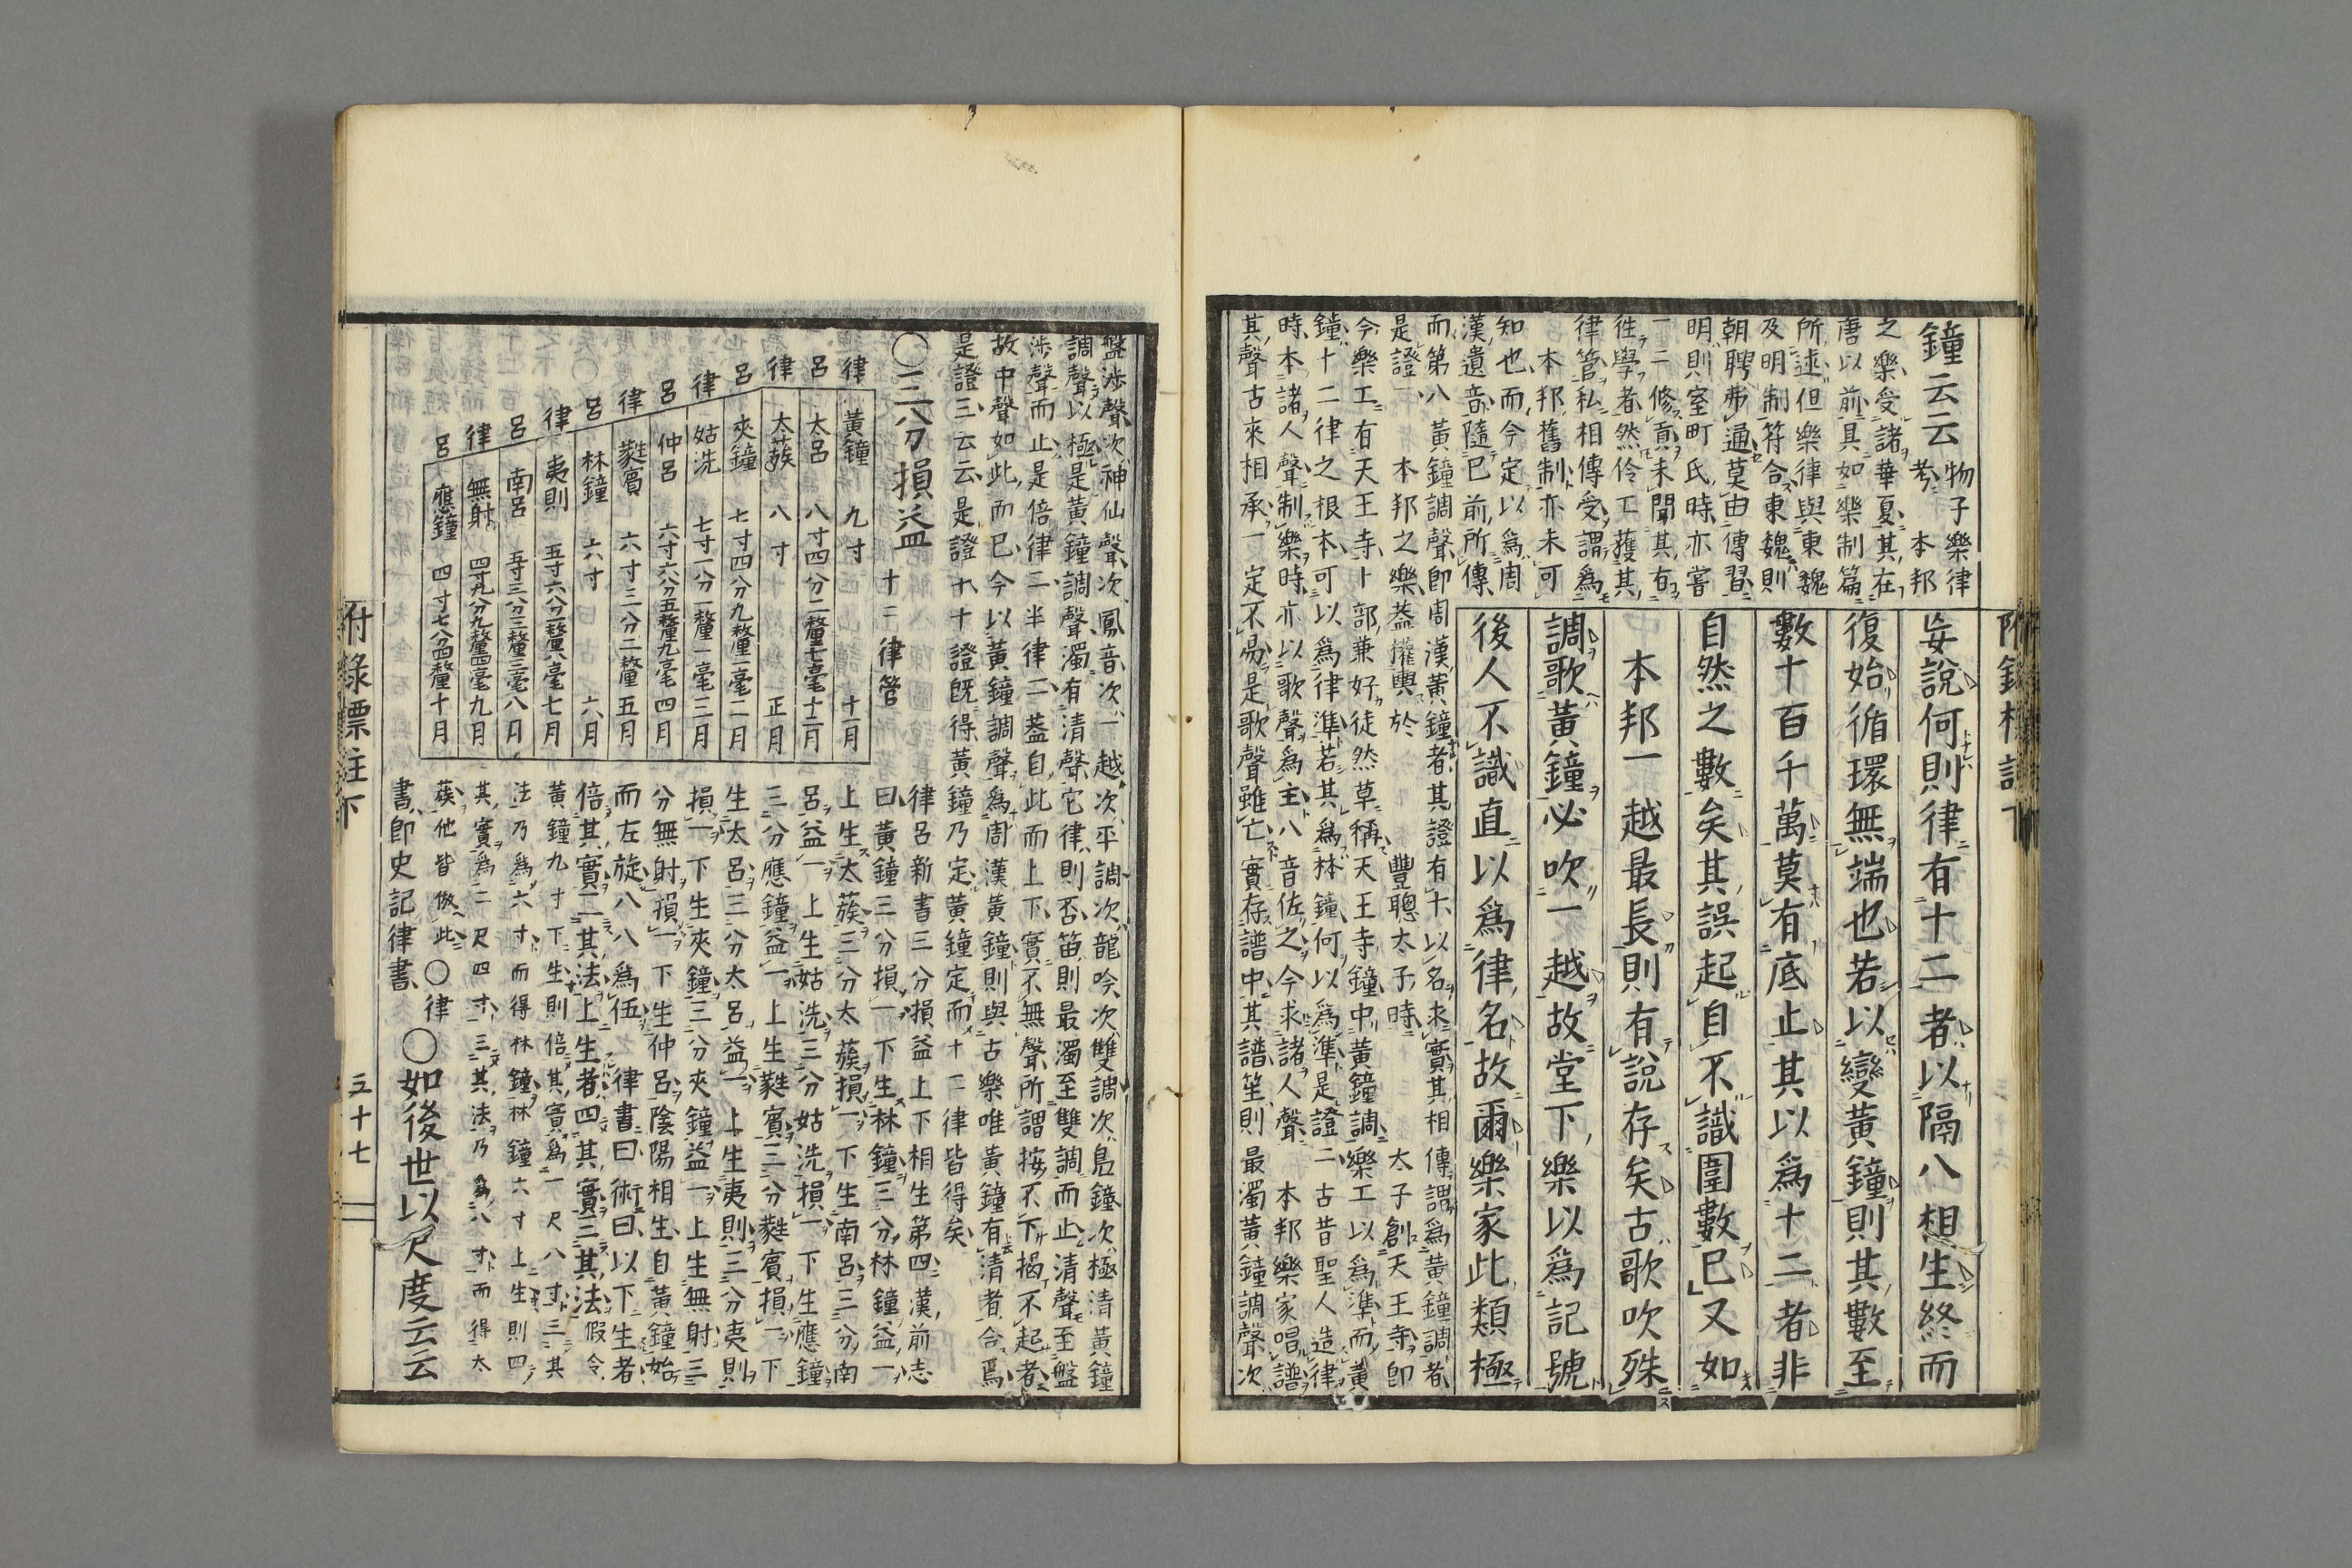 鐘云云
物子樂律
考本邦
之樂受諸華夏其在
唐以前具如樂制篇
所述但樂律與東魏
及明制符合東魏則
朝聘弗通莫由傳習
明則室町氏時亦嘗
一二修貢未聞其有
徃學者然伶工獲其
律管私相傳受謂爲
本邦舊制亦未可
知也而今定以爲周
漢遺音隨已前所傳
妄說何則律有十二者以隔八想生終而
復始循環無端也若以變黃鐘則其數至
數十百千萬莫有底止其以爲十二者非
自然之數矣其誤起自不識圍數已又如
本邦一越最長則有說存矣古歌吹殊
調歌黃鐘必吹一越故堂下樂以爲記號
後人不識直以爲律名故爾樂家此類極
而第八黃鐘調聲卽周漢黃鐘者其證有十以名求實其相傳謂爲黃鐘調者
是證一本邦之樂葢權輿於豐聰太子時太子創天王寺卽
今樂工有天王寺卜部兼好徒然草稱天王寺鐘中黃鐘調樂工以爲準而黃
鐘十二律之根本可以爲律準若其爲林鐘何以爲準是證二古昔聖人造律
時本諸人聲制樂時亦以歌聲爲主八音佐之今求諸人聲本邦樂家唱譜
其聲古來相承一定不易是歌聲雖亡實存譜中其譜笙則最濁黃鐘調聲次
盤涉聲次神仙聲次鳳音次一越次平調次龍吟次雙調次鳧鐘次極清黃鐘
調聲以極是黃鐘調聲濁有清聲它律則否笛則最濁至雙調而止清聲至盤
涉聲而止是倍律二半律二葢自此而上下實不無聲所謂按不下揭不起者
故中聲如此而已今以黃鐘調聲爲周漢黃鐘則與古樂唯黃鐘有清者合焉
是證三云云是證十十證旣得黃鐘乃定黃鐘定而十二律皆得矣
〇三分損益
十二律管
律 黃鐘 九寸 十一月
呂 太呂 八寸四分二釐七毫 十二月
律 太蔟 八寸 正月
呂 夾鐘 七寸四分九釐一毫 二月
律 姑洗 七寸一分一釐一毫 三月
呂 仲呂 六寸六分五釐九毫 四月
律 蕤賓 六寸三分二釐 五月
呂 林鐘 六寸 六月
律 夷則 五寸六分一釐八毫 七月
呂 南呂 五寸三分三釐三毫 八月
律 無射 四寸九分九釐四毫 九月
呂 應鐘 四寸七分四釐 十月
律呂新書三分損益上下相生第四漢前志
曰黃鐘三分損一下生林鐘三分林鐘益一
上生太蔟三分太蔟損一下生南呂三分南
呂益一上生姑洗三分姑洗損一下生應鐘
三分應鐘益一上生蕤賓三分蕤賓損一下
生太呂三分太呂益一上生夷則三分夷則
損一下生夾鐘三分夾鐘益一上生無射三
分無射損一下生仲呂陰陽相生自黃鐘始
而左旋八八爲伍律書曰術曰以下生者
倍其實二其法上生者四其實三其法假令
黃鐘九寸下生則倍其實爲一尺八寸三其
法乃爲六寸而得林鐘林鐘六寸上生則四
其實爲二尺四寸三其法乃爲八寸而得太
蔟他皆倣此〇律
書卽史記律書〇如後世以尺度云云
附錄標註下
五十七